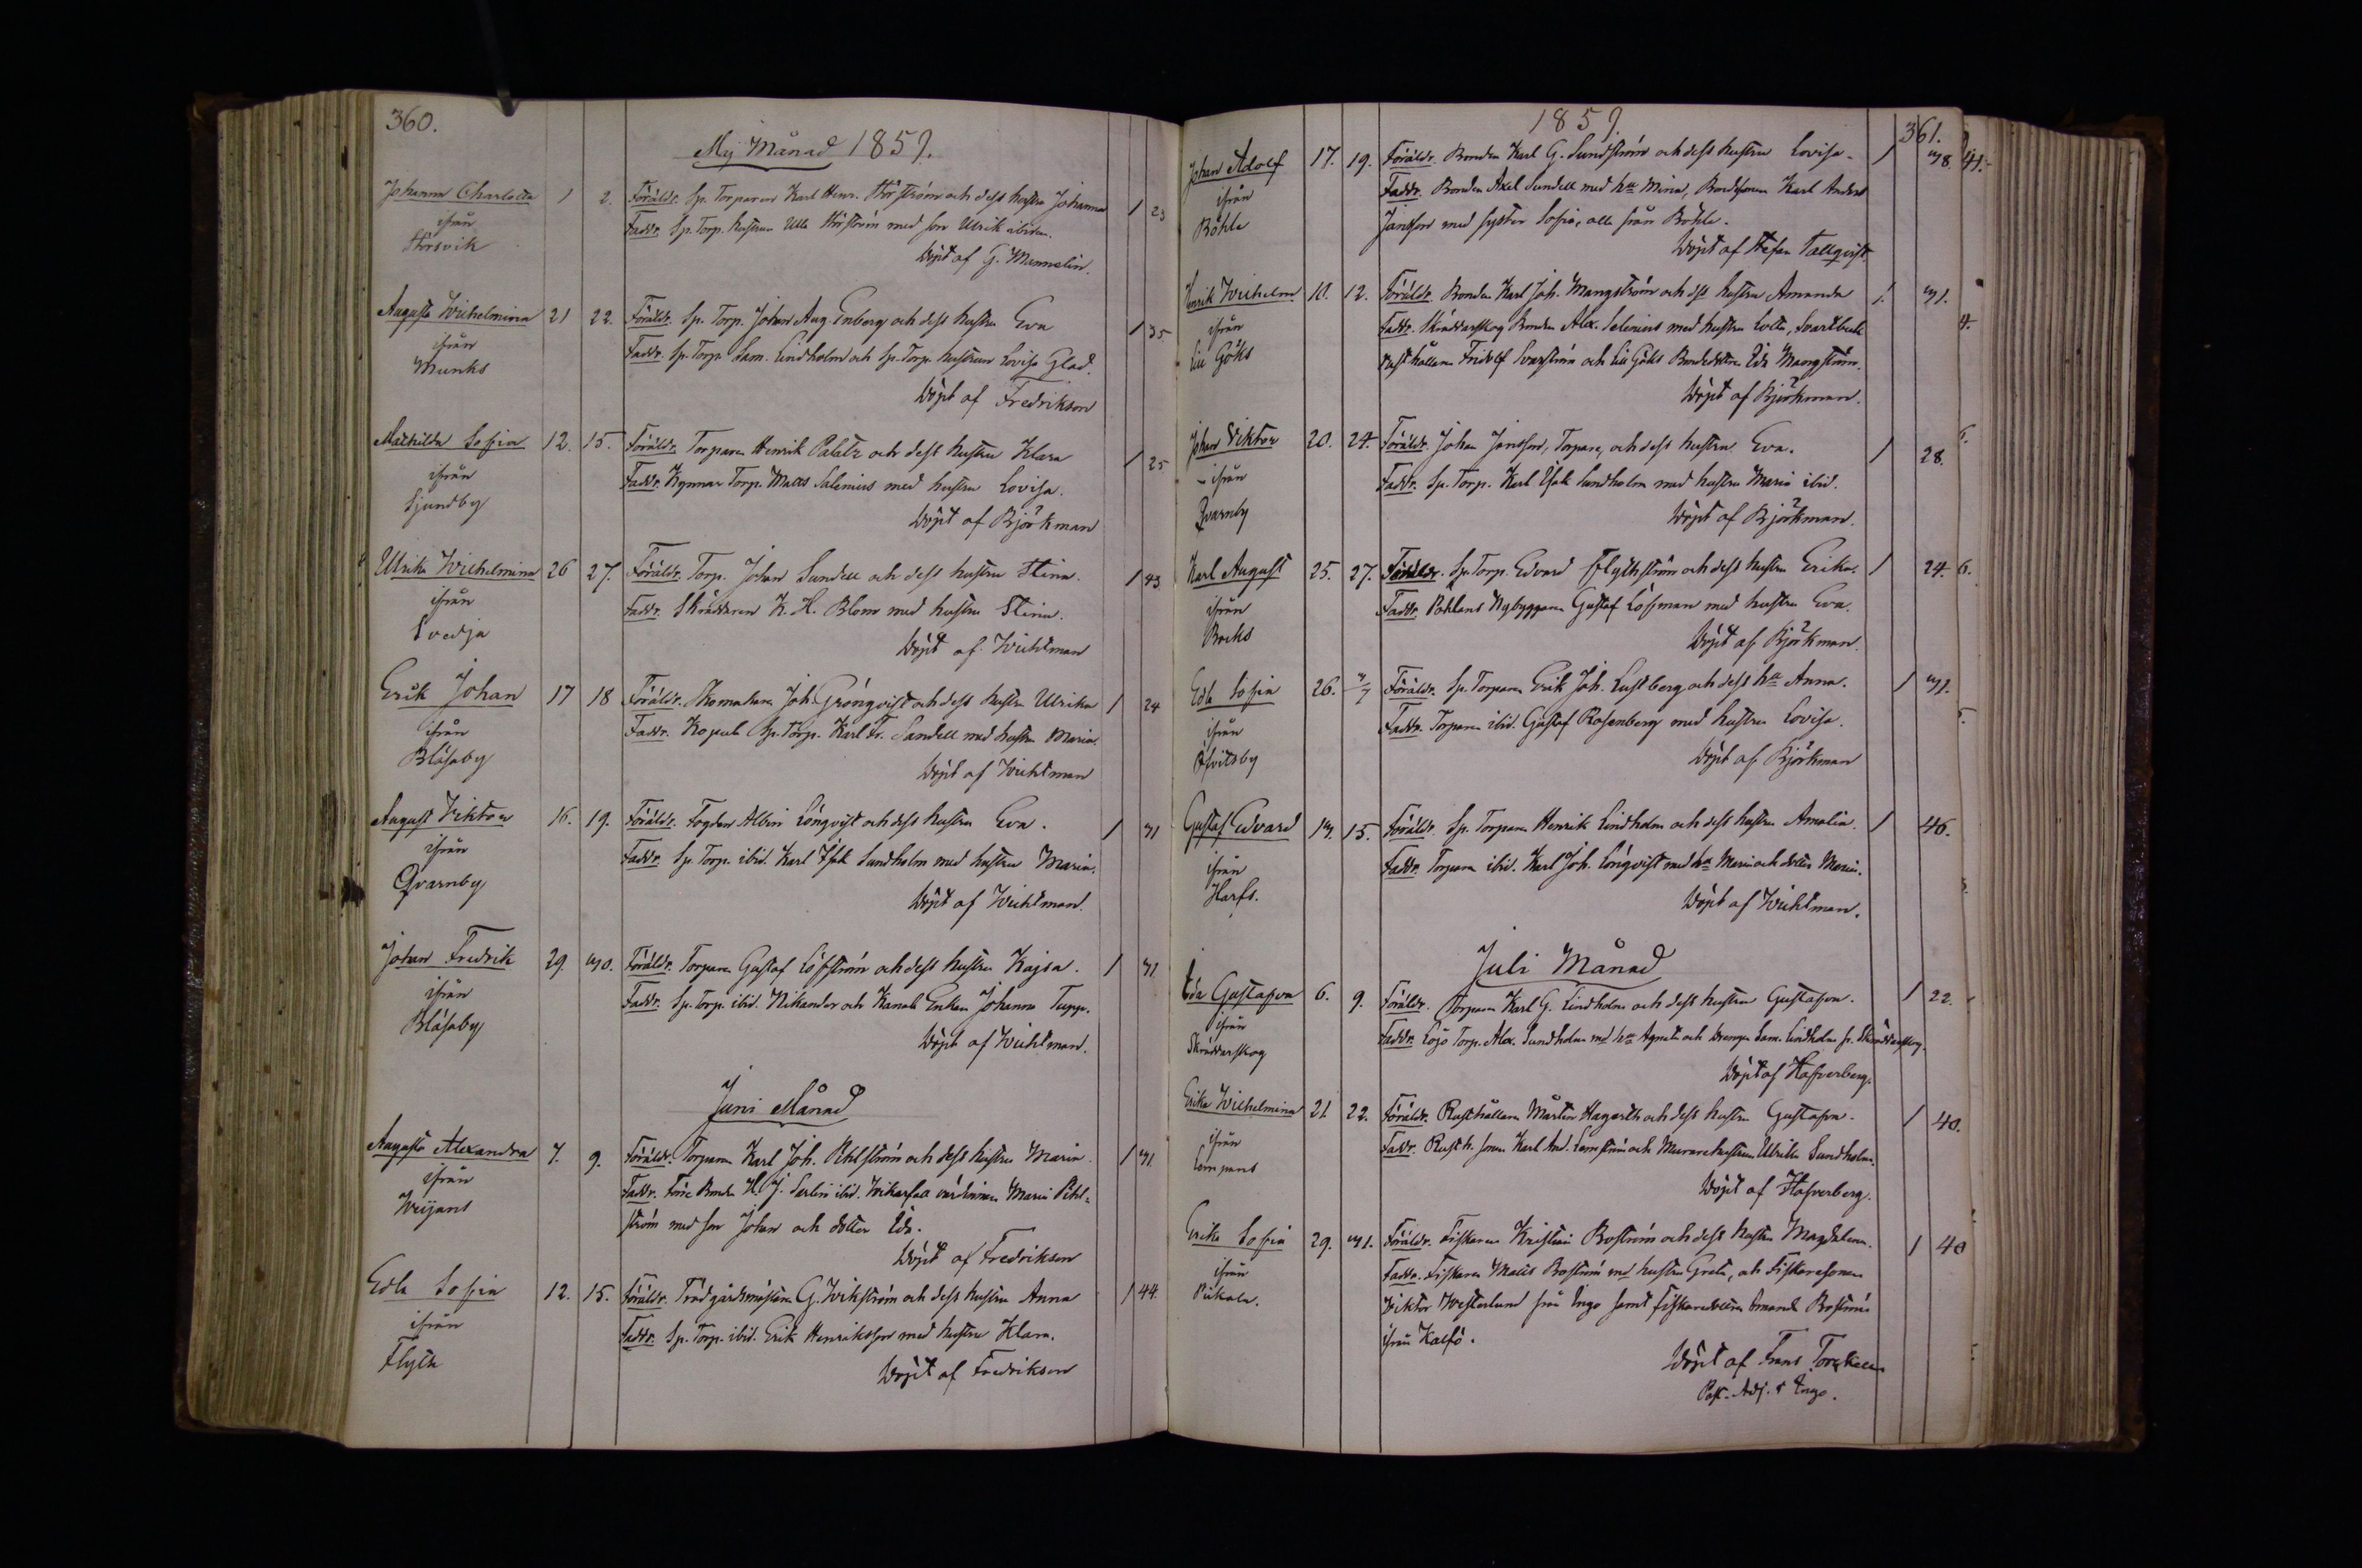 360.
Maj Månad 1857.
Johanna Charlotta 1 2. Föräldr. Sp. Torparen Karl Henr. Störström och dess hustru Johanna 1 23
ifrån Faddr. Sp. Torp. hustrun Ulla Störström med son Ulrik ibidem.
Störsvik
Döpt af G. Mannelin.
Augusta Wilhelmina 21 22. Föräldr. Sp. Torp. Johan Aug. Enberg och dess hustru Eva 1 35
ifrån Faddr. Sp. Torp. Sam. Lindholm och Sp. Torp. hustrun Lovisa Glad.
Munks
Döpt af Fredrikson
Mathilda Sofia 12. 15. Föräldr. Torparen Henrik Palatz och dess hustru Klara 1 25
ifrån Faddr. Kynnar Torp. Matts Salenius med hustru Lovisa.
Sjundby
Döpt af Björkman
Ulrika Wilhelmina 26 27. Föräldr. Torp. Johan Sundell och dess hustru Stina. 1 43
ifrån Faddr. Skräddaren K. H. Blom med hustru Stina.
Svedja
Döpt af Wichtman
Erik Johan 17 18 Föräldr. Skomakaren Joh. Grönqvist och dess hustru Ulrika 1 24
ifrån Faddr. Kopula Sp. Torp. Karl Fr. Sandell med hustru Maria.
Blåsaby
Döpt af Wichtman
August Viktor 16. 19. Föräldr. Fogden Albin Lönqvist och dess hustru Eva. 1 31
ifrån Faddr. Sp. Torp. ibid. Karl Isak Sundholm med hustru Maria.
Qvarnby
Döpt af Wichtman.
Johan Fredrik 29. 30. Föräldr. Torparen Gustaf Löfström och dess hustru Kajsa. 1 31
ifrån Faddr. Sp. Torp. ibid. Nikander och Enkan Johanna Tupp.
Blåsaby
Döpt af Wichtman.
Juni Månad
Augusta Alexandra 7. 9. Föräldr. Torparen Karl Joh. Pihlström och dess hustru Maria. 1 31
ifrån Faddr. Före Bonden H. J. Serlin ibid. Maria Pihl=
Weijans ström med son Johan och dotter Ida.
Döpt af Fredrikson
Edla Sofia 12. 15. Föräldr. Trädgårdsmästaren G. Wikström och dess hustru Anna 1 44.
ifrån Faddr. Sp. Torp. ibid. Erik Henriksson med hustru Klara.
Flyth
Döpt af Fredrikson
1857. 361.
Johan Adolf 17. 19. Föräldr. Bonden Karl G. Sundström och dess hustru Lovisa. 1 38.
ifrån Faddr. Bonden Axel Sundell med h:u Mina, Bondsonen Karl Anders
Böhle Jansson med syster Sofia, alla från Böhle.
Döpt af Stefan Tallqvist.
Henrik Wilhelm 10. 12. Föräldr. Bonden Karl Joh. Mangström och dess hustru Amanda 1. 31.
ifrån Faddr. Skräddarskog Bonden Alex. Selenius med hustru Lotta, Svartbäck
Lill Göks rusthållaren Fridolf Svartström och Lill Göks Bondedottren Ida Mangström.
Döpt af Björkman.
Johan Viktor 20. 24. Föräldr. Johan Jansson, Torpare, och dess hustru Eva. 1 28.
ifrån Faddr. Sp. Torp. Karl Isak Sundholm med hustru Maria ibid.
Qvarnby
Döpt af Björkman.
Karl August 25. 27. Föräldr. Sp. Torp. Edvard Flythström och dess hustru Erika. 1 24.
ifrån Faddr. Pohlans Nybyggaren Gustaf Löfman med hustru Eva.
Bocks
Döpt af Björkman.
Edla Sofia 26. Föräldr. Sp. Torparen Erik Joh. Lustberg och dess h:u Anna. 1 31.
ifrån Faddr. Torparen ibid. Gustaf Rosenberg med hustru Lovisa.
Qvitsby
Döpt af Björkman
Gustaf Edvard 13. 15. Föräldr. Sp. Torparen Henrik Lindholm och dess hustru Amalia. 1 46.
ifrån Faddr. Torparen ibid. Karl Joh. Lönqvist med h:u Maria och dotter Maria.
Harfs.
Döpt af Wichtman.
Juli Månad
Ida Gustafva 6. 9. Föräldr. Torparen Karl G. Lindholm och dess hustru Gustafva. 1 22.
ifrån Faddr. Lojo Torp. Alex. Sundholm med h:u Agneta och drängen Sam. Lindholm fr. Skräddarskog.
Skräddarskog
Döpt af Hafverberg.
Erika Wilhelmina 21. 22. Föräldr. Rusthållaren Mårten Hagerth och dess hustru Gustafva. 1 40.
ifrån Faddr. Rusth. sonen Karl And. Lemström och Murarehustrun Ulrika Sundholm.
Lempans
Döpt af Hafverberg.
Erika Sofia 29. 31. Föräldr. Fiskaren Kristian Boström och dess hustru Magdalena. 1 40
ifrån Faddr. Fiskaren Matts Boström med hustru Greta, och Fiskaresonen
Pickala. Viktor Westerlund från Ingo samt fiskaredottren Amanda Boström
ifrån Kalfö.
Döpt af Frans Torckell
Past. Adj. i Ingo.